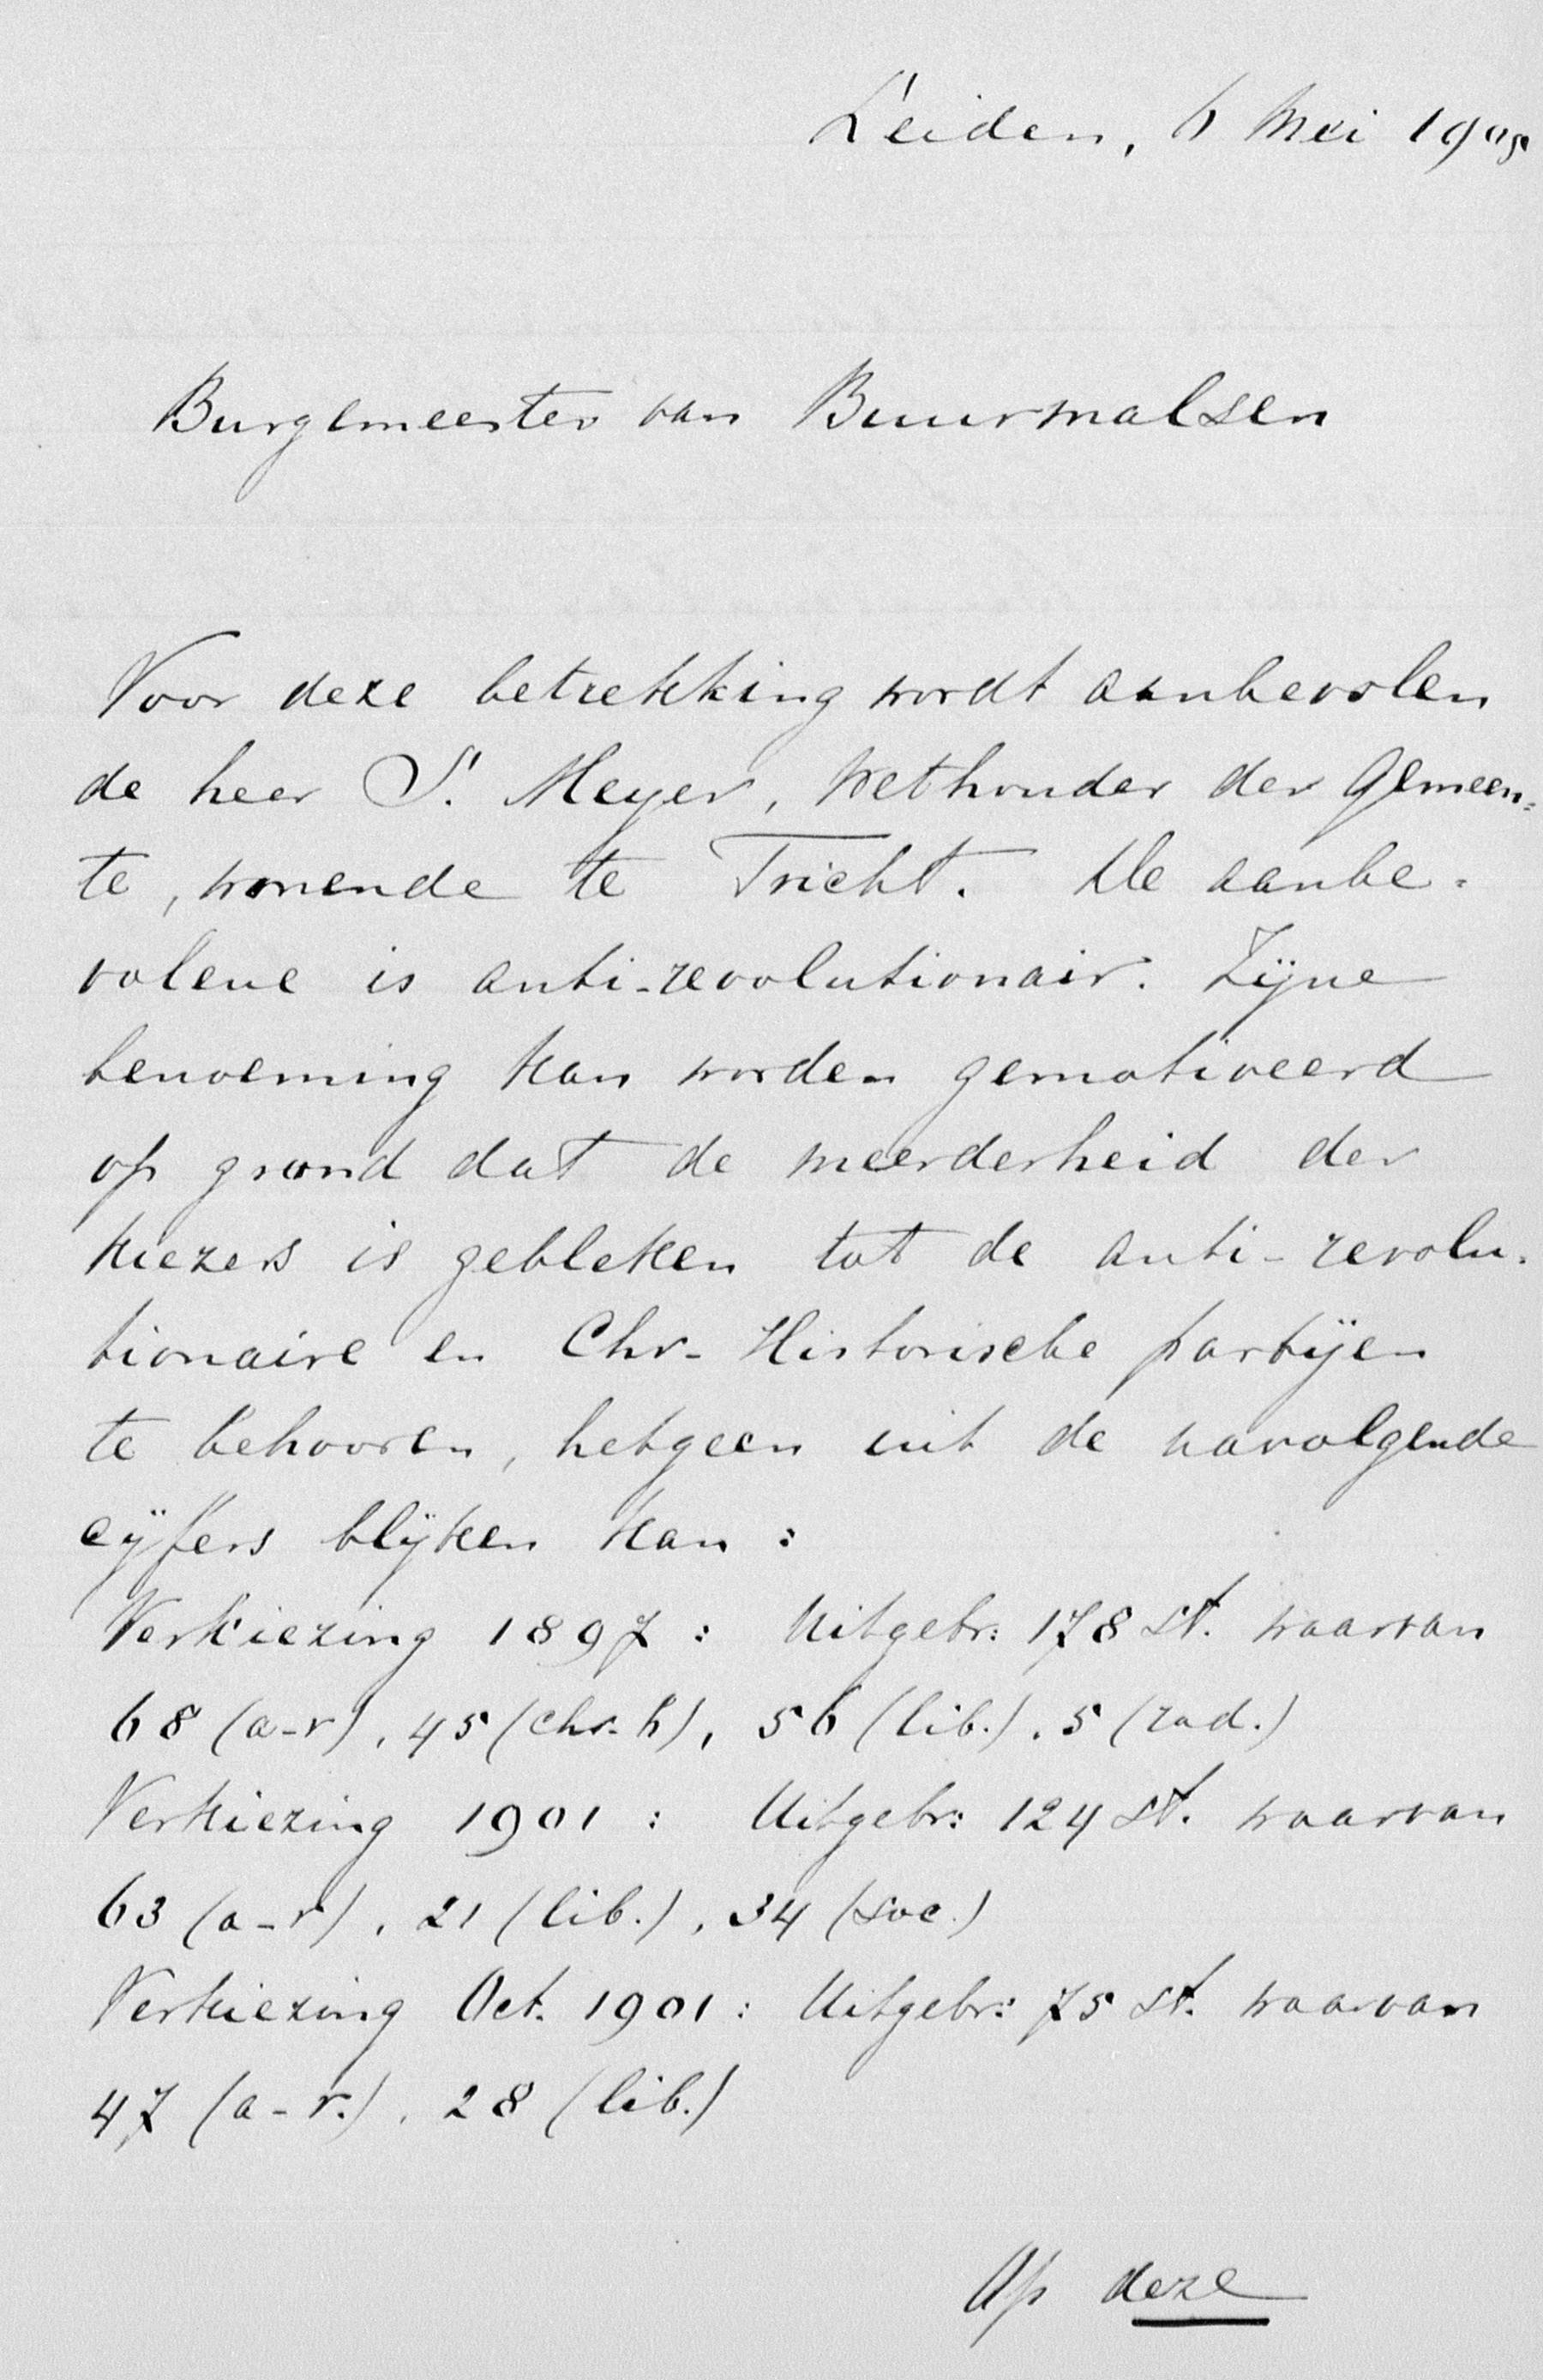 Leiden, 6 Mei 1905
Burgemeester van Buurmalsen
Voor deze betrekking wordt aanbevolen
de heer S. Meyer, Wethouder der Gemeen=
te, wonende te Tricht. De aanbe-
volene is anti-revolutionair. Zijne
benoeming kan worden gemotiveerd
op grond dat de meerderheid der
kiezers is gebleken tot de anti-revolu-
tionaire en Chr-Historische partijen
te behooren, hetgeen uit de navolgende
cijfers blijken kan:
Verkiezing 1897: Uitgebr: 178 st. waarvan
68 (a-r), 45 (chr-h), 56 (lib.), 5 (rad.)
Verkiezing 1901: Uitgebr: 124 st. waarvan
63 (a-r), 21 (lib.), 34 (soc.)
Verkiezing Oct. 1901: Uitgebr: 75 st. waarvan
47 (a-r.), 28 (lib.)
Op deze